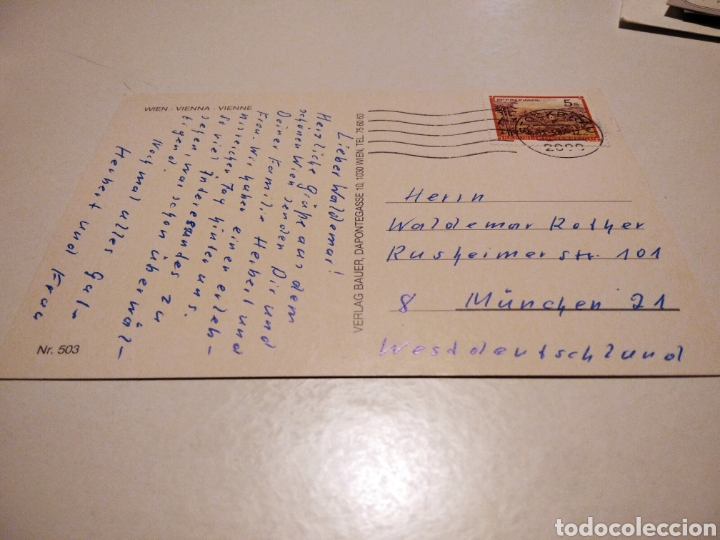 WIEN - VIENNA - VIENNE
Lieber Waldemar!
Herzliche Grüße aus dem
schönen Wien senden Dir und
Deine Familie Herbert und
Frau. Wir haben einen erleb-
nisreicher Tag hinter uns.
So viel Interessandes zu
sehen, war schon überwäl-
tigend.
Noch mal alles Gute
Herbert und Frau
Nr. 503
VERLAG BAUER, DAPONTEGASSE 10, 1030 WIEN, TEL. 75 60 63
5 S
Herrn
Waldemar Rother
Rusheimerstr. 101
8 München 21
Westdeutschland
todocoleccion